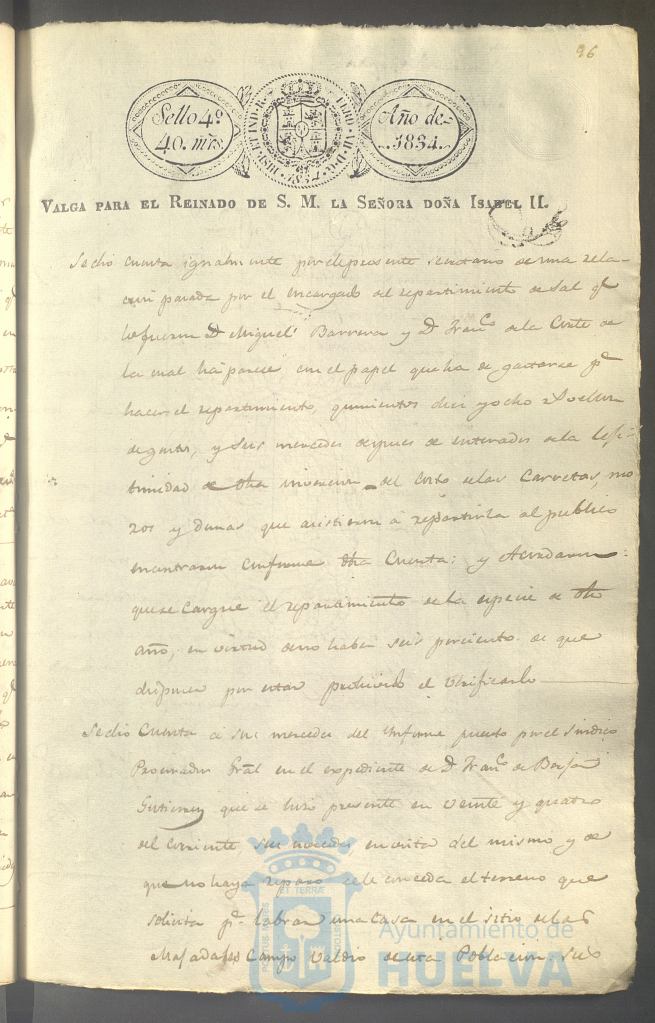 96
Sello 4º
40. mrs.
HISP. ET IND. R.
FERD. VII. D. G.
Año de
1834.
VALGA PARA EL REINADO DE S. M. LA SEÑORA DOÑA ISABEL II.
Se dio cuenta igualmente por el presente secretario de una rela-
cion pasada por el encargado del repartimiento de Sal qe
lo fueron Dn Miguel Barrera y Dn Franco de la Corte de
la cual ha parece con el papel que ha de gastarse pa
hacer el repartimiento, quinientos diez y ocho rs vellon
de gastos, y sus mercedes despues de enterados de la lefi-
timidad de dha inversion del costo de las Carretas, mo
zos y demas que asistieron á repartirla al publico
encontraron conforme dha Cuenta: y Acordaron
que se cargue el repartimiento de la especie de dho
año, en virtud de no haber seis porciento de que
disponer por estar prohivido el Verificarlo
Se dio Cuenta á sus mercedes del Informe puesto por el Sindico
Procurador Gral en el expediente de Dn Franco de
Gutierrez que se hizo presente en veinte y quatro
del corriente sus mercedes en vista del mismo y de
que no haya reparo se le conceda el terreno que
solicita pa labrar una Casa en el sitio de las
Majadales Campo Valdio de esta Poblacion. sus
PORTUS MARIS
ET TERRÆ
CUSTODIA
Ayuntamiento de
HUELVA